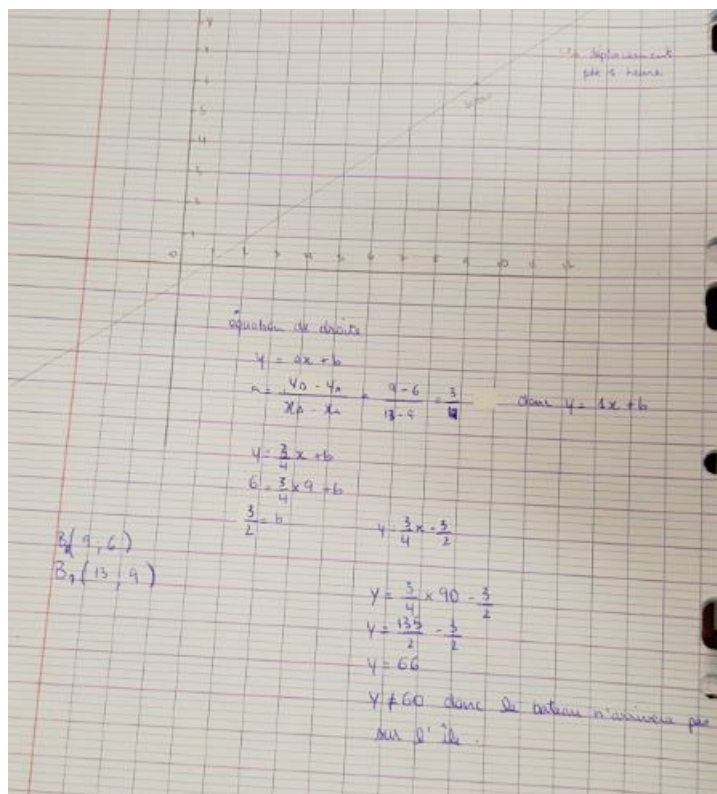 déplacement
par 1 heure
y
5
4
3
2
1
0 1 2 3 4 5 6 7 8 9 10 11 12
équation de droite
y = ax + b
a = yB - yA / xB - xA = 9 - 6 / 13 - 9 = 3 / 4 donc y = 1x + b
y = 3/4 x + b
6 = 3/4 x 9 + b
3/2 = b y = 3/4 x - 3/2
(9, 6)
(13, 9)
y = 3/4 × 90 - 3/2
y = 135/2 - 3/2
y = 66
y ≠ 60 donc le bateau n'arrivera pas
sur l'île.